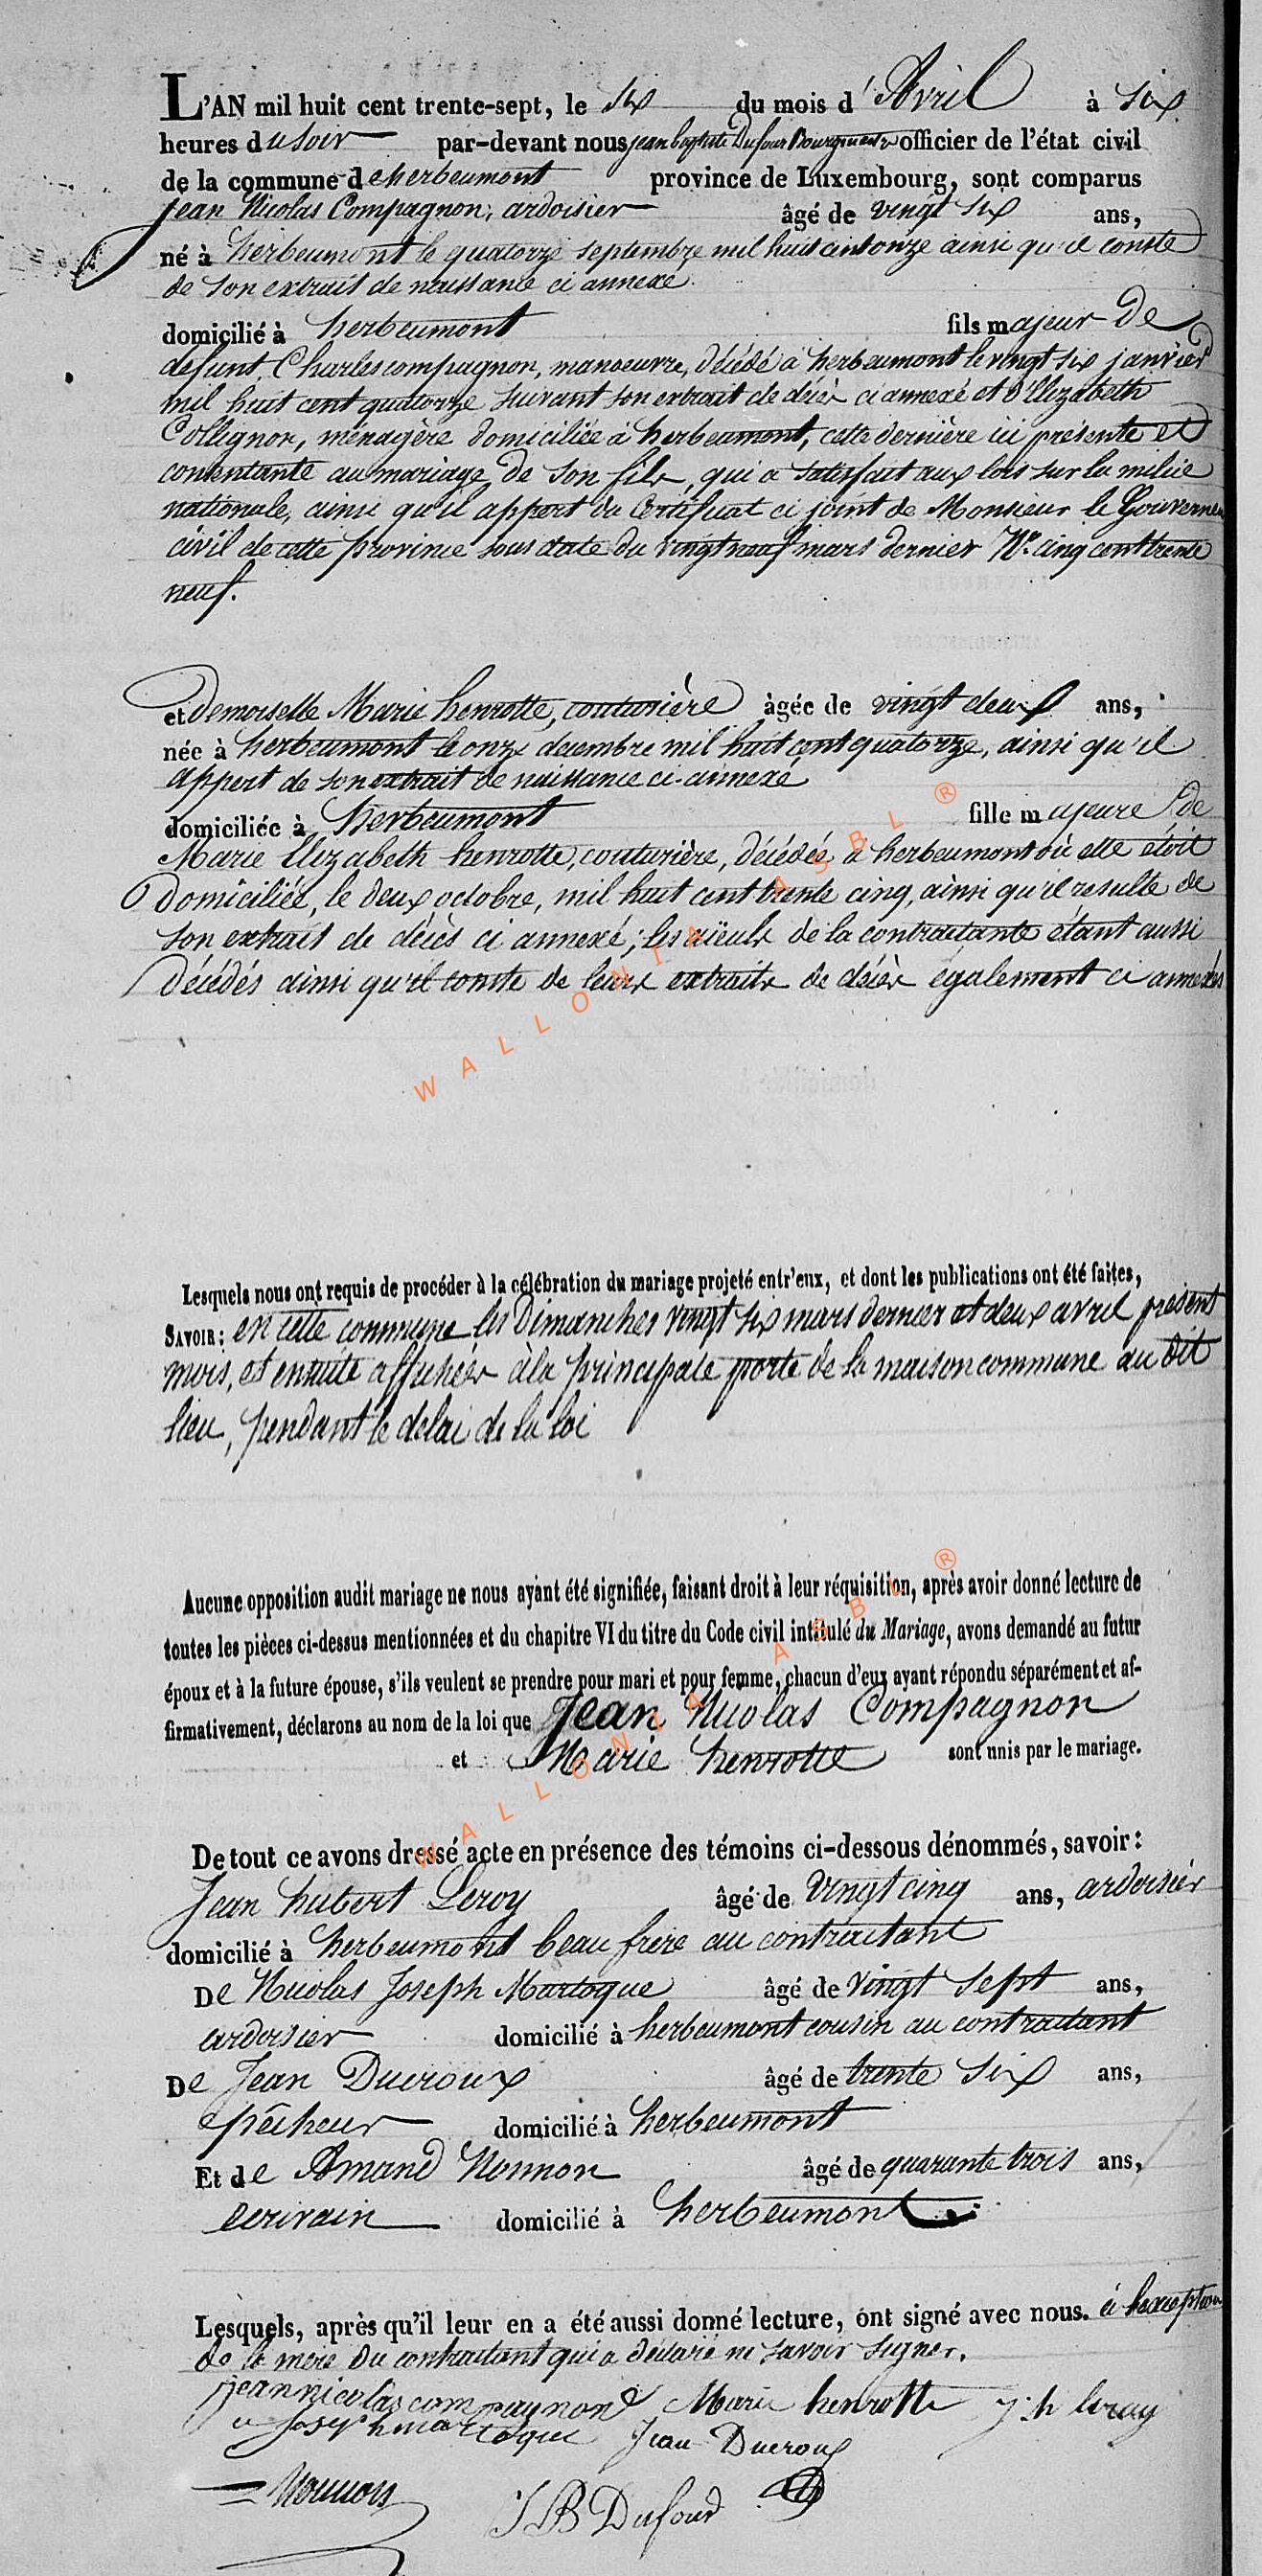 L'AN mil huit cent trente-sept, le Six du mois d'Avril à Six
heures du soir par-devant nous jean baptiste Dufour Bourgmestre officier de l'état civil
de la commune d'herbeumont province de Luxembourg, sont comparus
jean Nicolas Compagnon, ardoisier âgé de vingt six ans,
né à herbeumont le quatorze septembre mil huit cent onze ainsi qu'il conste
de son extrait de naissance ci annexé
domicilié à herbeumont fils majeur de
defunt Charles compagnon, manoeuvre, décédé à herbeumont le vingt six janvier
mil huit cent quatorze suivant son extrait de décès ci annexé et d'Elizabeth
Collignon, ménagère domiciliée à herbeumont, cette dernière ici présente et
consentante au mariage de son fils, qui a satisfait aux lois sur la milice
nationale, ainsi qu'il appert du Certificat ci joint de Monsieur le Gouverneur
civil de cette province sous date du vingt neuf mars dernier N°. cinq cent trente
neuf.
et demoiselle Marie henrotte, couturière âgée de vingt deux ans,
née à herbeumont le onze décembre mil huit cent quatorze, ainsi qu'il
appert de son extrait de naissance ci-annexé
domiciliée à herbeumont fille majeure de
Marie Elizabeth henrotte, couturière, décédée à herbeumont où elle étoit
domiciliée, le deux octobre, mil huit cent trente cinq, ainsi qu'il resulte de
son extrait de décès ci annexé; les aïeuls de la contractante étant aussi
décédés ainsi qu'il conste de leurs extraits de décès également ci annexés
WALLONIA ASBL ®
Lesquels nous ont requis de procéder à la célébration du mariage projeté entr'eux, et dont les publications ont été faites,
SAVOIR: en cette commune les Dimanches vingt six mars dernier et deux avril présent
mois, et ensuite affichées à la principale porte de la maison commune au dit
lieu, pendant le delai de la loi
Aucune opposition audit mariage ne nous ayant été signifiée, faisant droit à leur réquisition, après avoir donné lecture de
toutes les pièces ci-dessus mentionnées et du chapitre VI du titre du Code civil intitulé du Mariage, avons demandé au futur
époux et à la future épouse, s'ils veulent se prendre pour mari et pour femme, chacun d'eux ayant répondu séparément et af-
firmativement, déclarons au nom de la loi que Jean Nicolas Compagnon
et Marie henrotte sont unis par le mariage.
WALLONIA ASBL ®
De tout ce avons dressé acte en présence des témoins ci-dessous dénommés, savoir:
Jean hubert Leroy âgé de vingt cinq ans, ardoisier
domicilié à herbeumont beau frère au contractant
De Nicolas Joseph Martoque âgé de vingt sept ans,
ardoisier domicilié à herbeumont cousin au contractant
De Jean Ducroux âgé de trente six ans,
pêcheur domicilié à herbeumont
Et de Amand Nonnon âgé de quarante trois ans,
ecrivain domicilié à herbeumont
Lesquels, après qu'il leur en a été aussi donné lecture, ont signé avec nous. à l'exception
de la mère du contractant qui a déclaré ne savoir signer.
jean nicolas compagnon Marie henrotte j h leroy
n joseph martoque Jean Ducroux
Nonnon JB Dufour